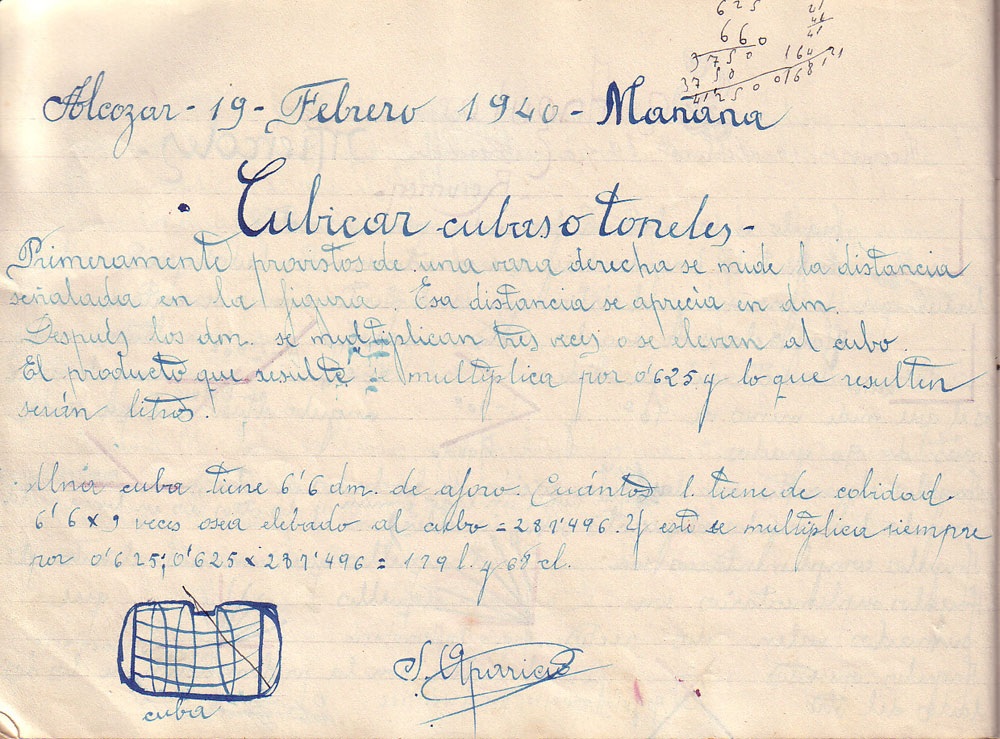 625
660
3750
3750
41250
21
41
41
164
01681
21
Alcozar - 19 - Febrero 1940 - Mañana
Cubicar cubas o toneles -
Primeramente provistos de una vara derecha se mide la distancia
señalada en la figura. Esa distancia se aprecia en dm.
Después los dm. se multiplican tres veces o se elevan al cubo.
El producto que resulte se multiplica por 0'625 y lo que resulten
serán litros.
Una cuba tiene 6'6 dm. de aforo. Cuántos l. tiene de cabidad.
6'6 x 3 veces osea elebado al cubo = 287'496. Y este se multiplica siempre
por 0'625; 0'625 x 287'496 = 179 l. y 68 cl.
cuba
S. Aparicio